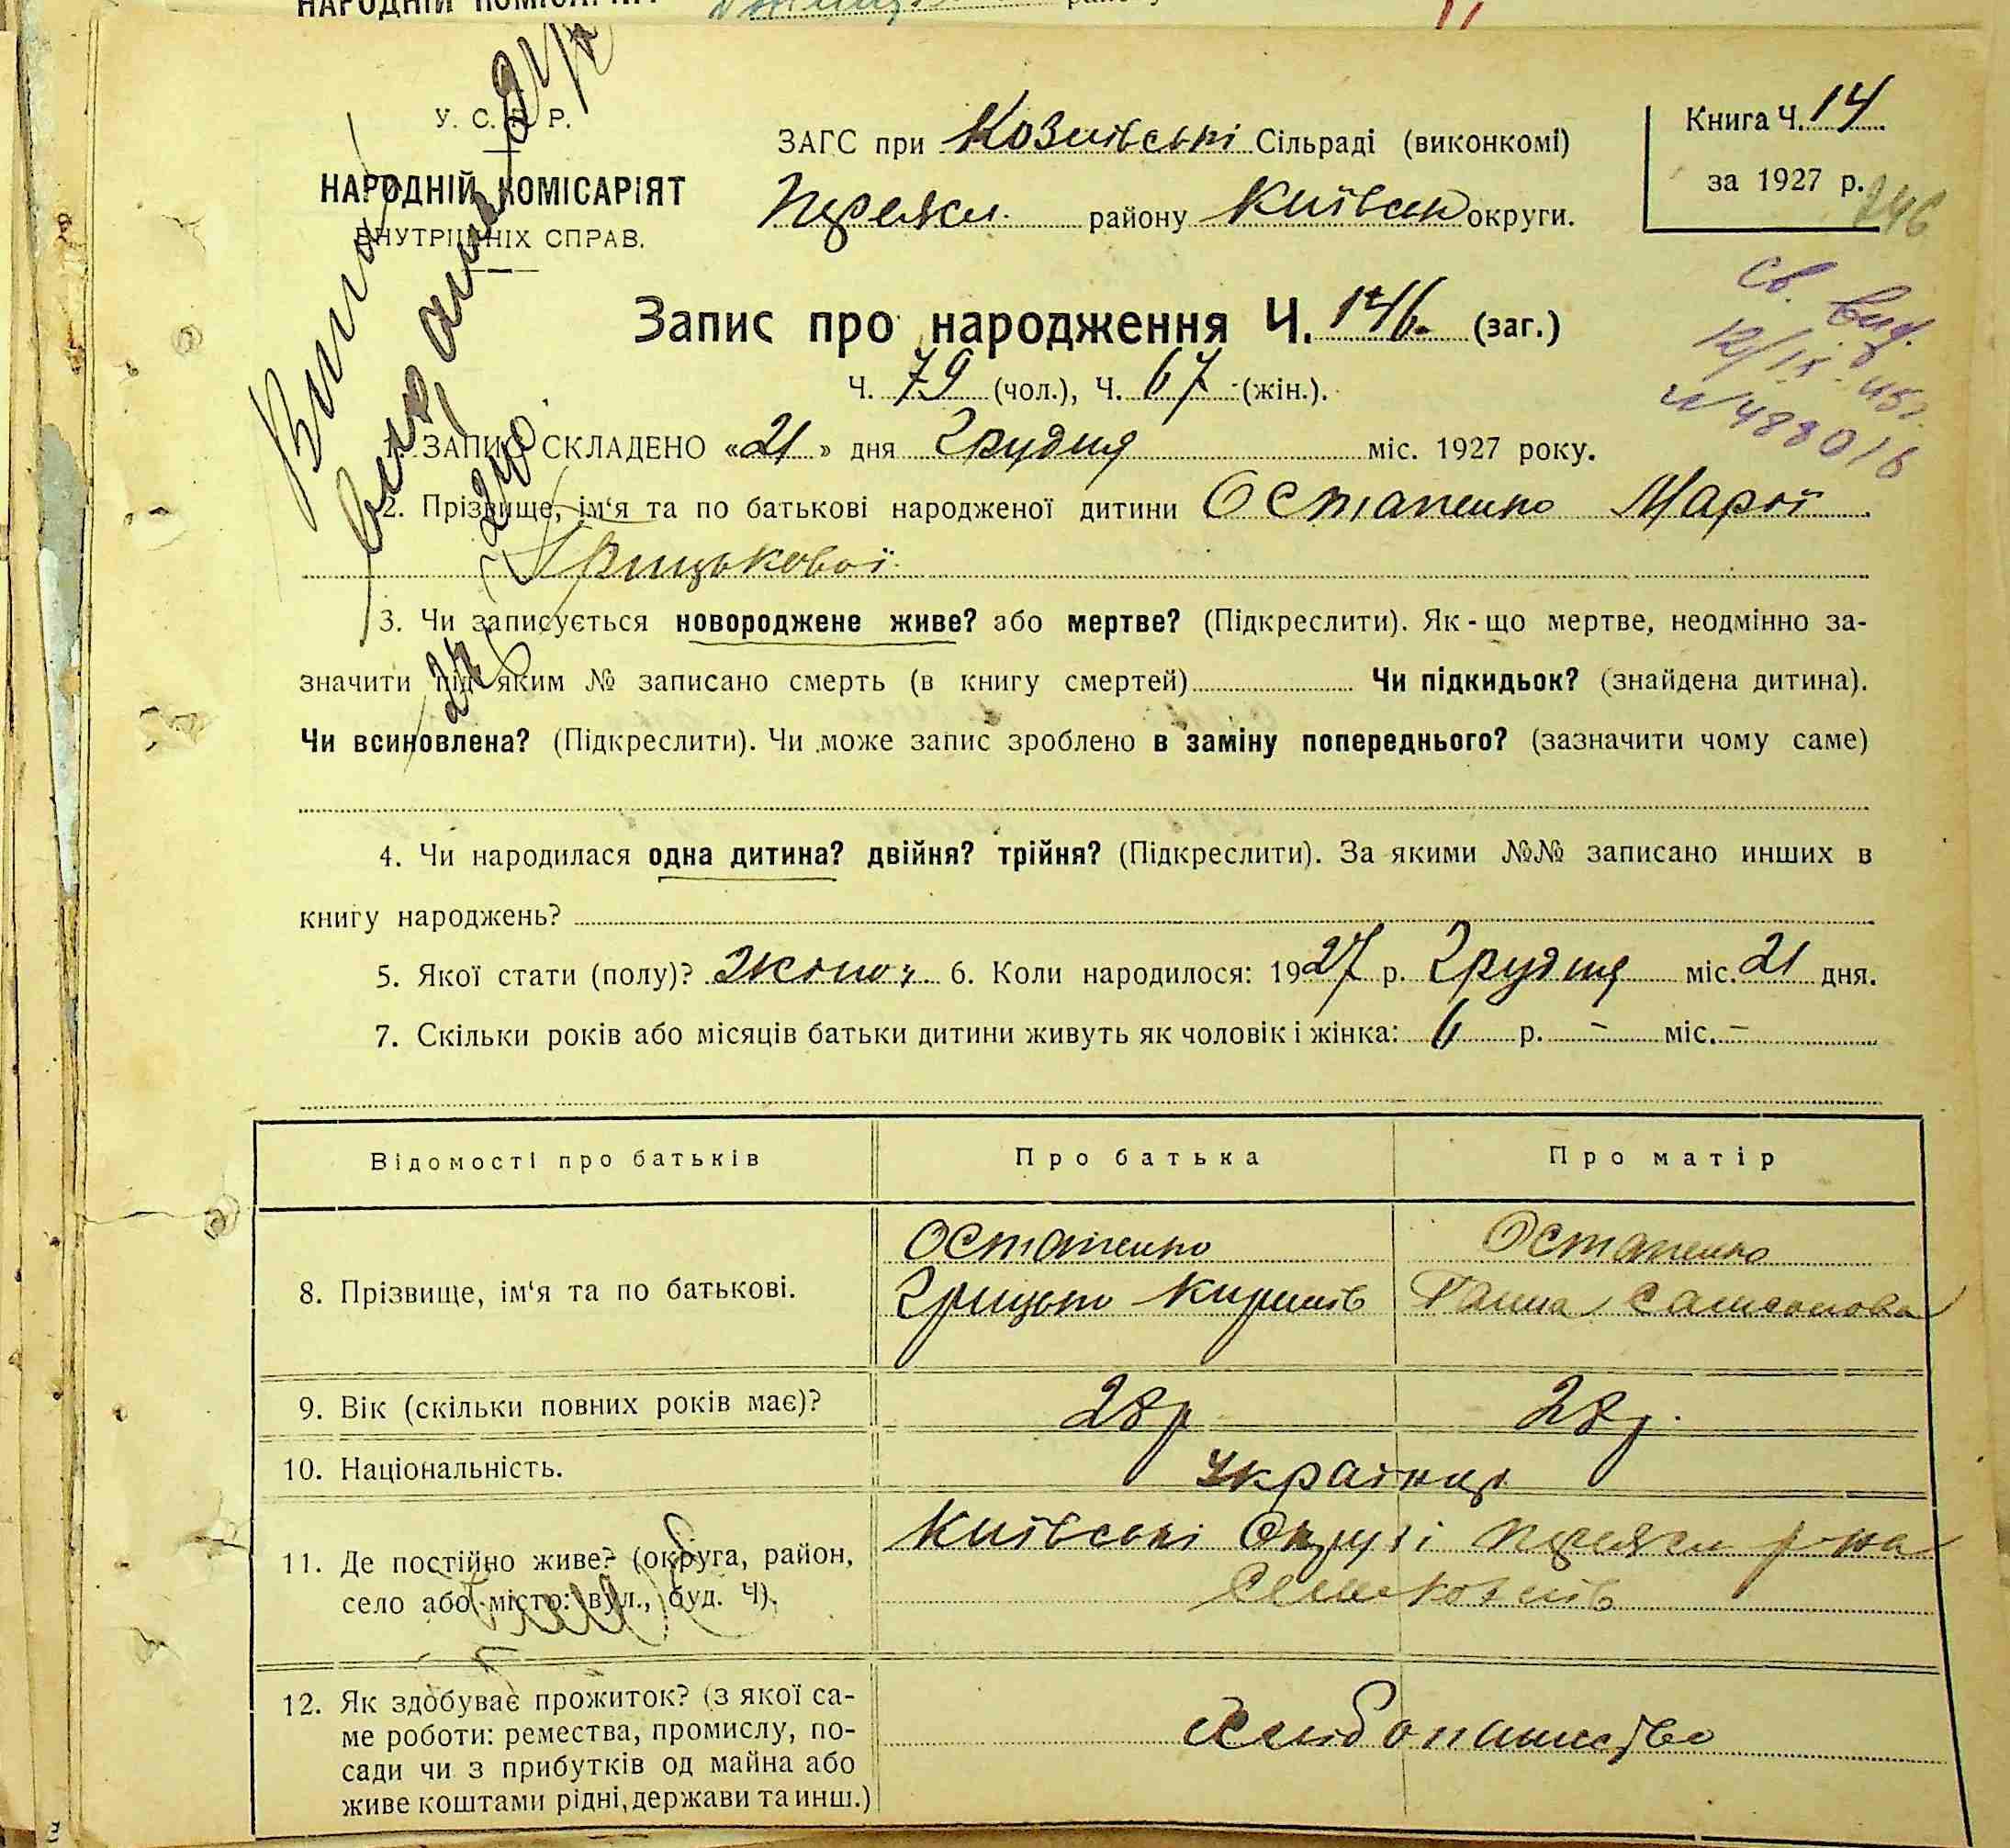 НАРОДНІЙ КОМІСАРІЯТ
У. С. Р. Р.
НАРОДНІЙ КОМІСАРІЯТ
ВНУТРІШНІХ СПРАВ.
ЗАГС при Козинські Сільраді (виконкомі)
району Київськ округи.
Книга Ч. 14
за 1927 р.
146
Запис про народження Ч. 146. (заг.)
Ч. 79 (чол.), Ч. 67 (жін.).
св. выд.
№ 488016
1. ЗАПИС СКЛАДЕНО «21» дня Грудня міс. 1927 року.
2. Прізвище, ім'я та по батькові народженої дитини Остапенко Марії
Грицькової
3. Чи записується новороджене живе? або мертве? (Підкреслити). Як-що мертве, неодмінно за-
значити під яким № записано смерть (в книгу смертей) Чи підкидьок? (знайдена дитина).
Чи всиновлена? (Підкреслити). Чи може запис зроблено в заміну попереднього? (зазначити чому саме)
4. Чи народилася одна дитина? двійня? трійня? (Підкреслити). За якими №№ записано инших в
книгу народжень?
5. Якої стати (полу)? жіноч. 6. Коли народилося: 1927 р. Грудня міс. 21 дня.
7. Скільки років або місяців батьки дитини живуть як чоловік і жінка: 6 р. – міс. –
Відомості про батьків Про батька Про матір
8. Прізвище, ім'я та по батькові.
Остапенко Остапенко
Грицько Ганна Самсонова
9. Вік (скільки повних років має)? 28р 28р.
10. Національність. Українці
11. Де постійно живе? (округа, район,
село або місто: вул., буд. Ч).
Київські Окрузі р-на
12. Як здобуває прожиток? (з якої са-
ме роботи: ремества, промислу, по-
сади чи з прибутків од майна або
живе коштами рідні, держави та инш.)
Хлібопашество